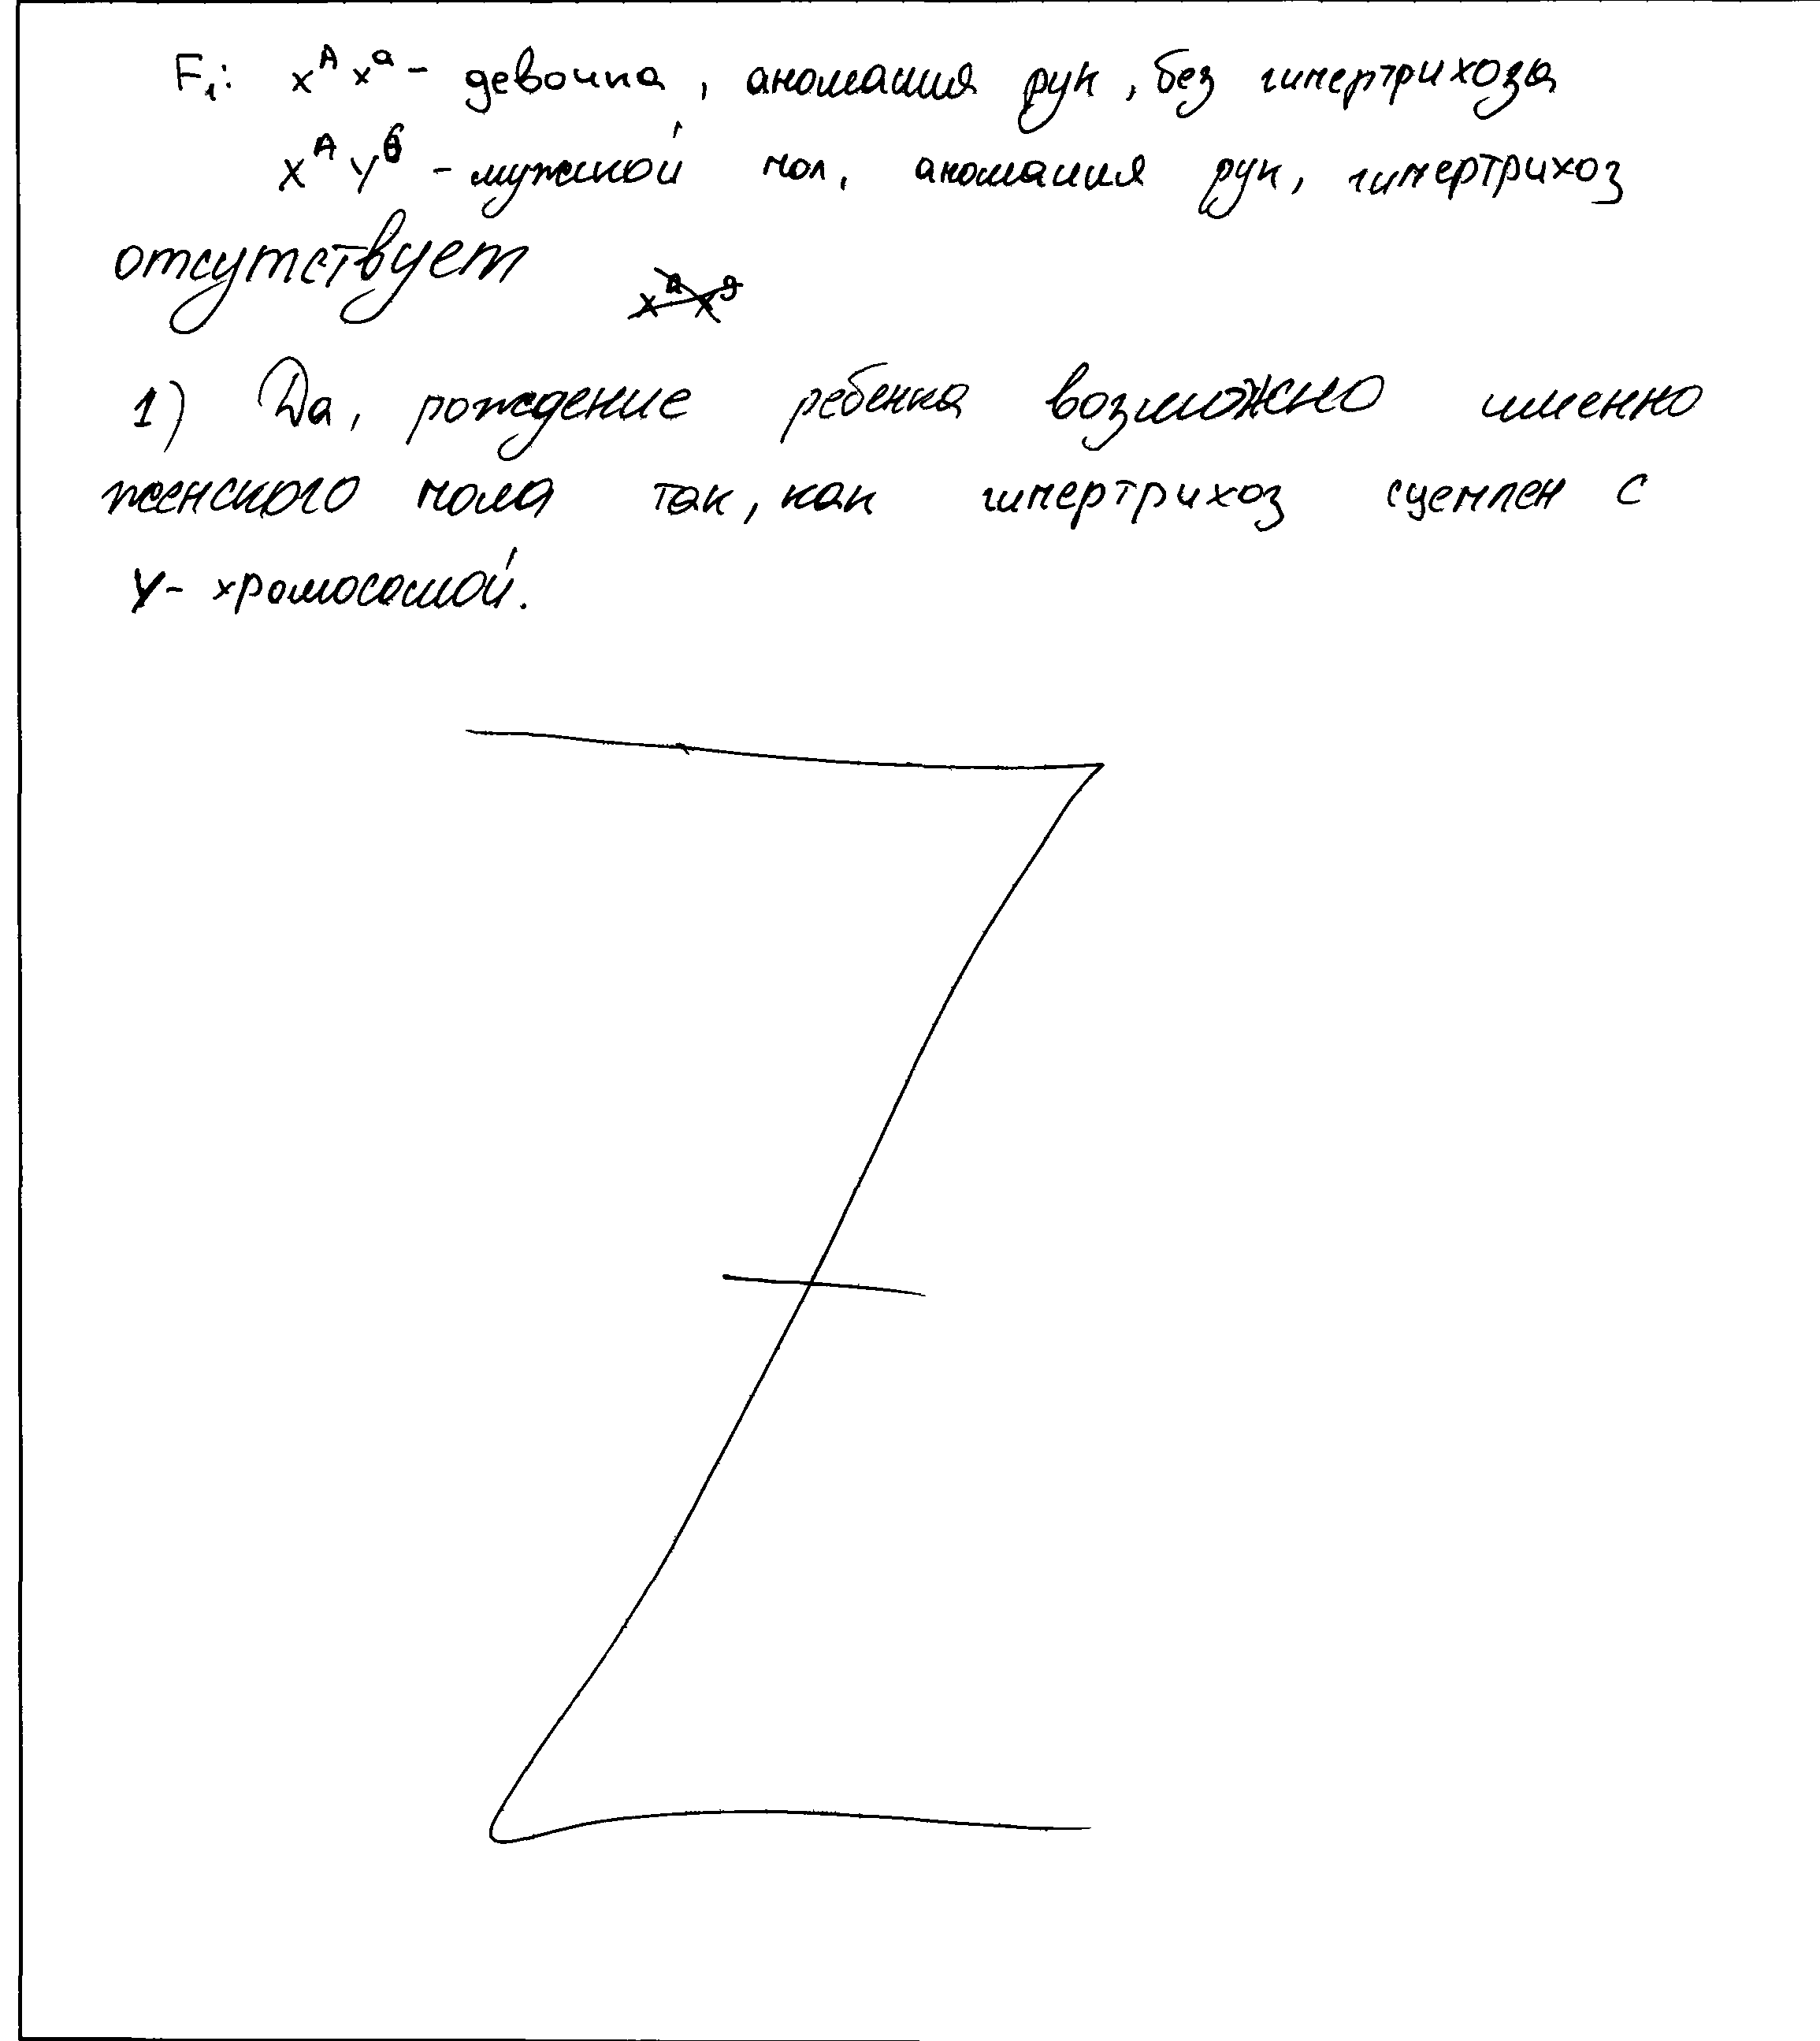 F₁: xᴬ xᵃ - девочка, аномалия рук, без гипертрихоза
xᴬ yᵇ - мужской пол, аномалия рук, гипертрихоз
отсутствует
1) Да, рождение ребенка возможно именно
женского пола так, как гипертрихоз сцеплен с
Y- хромосомой.